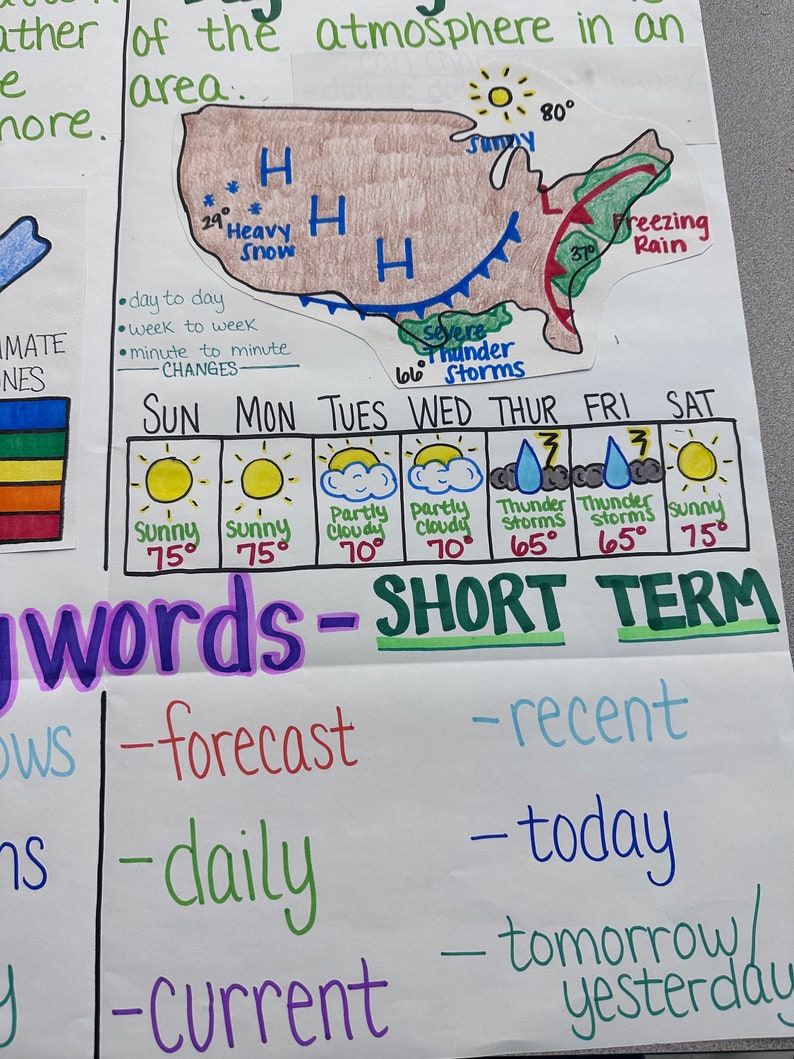 of the atmosphere in an
area.
e
more.
80°
Sunny
H
H
H
29°
Heavy
Snow
L
Freezing
Rain
37°
• day to day
• week to week
• minute to minute
CHANGES
Severe
Thunder
Storms
66°
SUN MON TUES WED THUR FRI SAT
Sunny
75°
Sunny
75°
Partly
Cloudy
70°
Partly
Cloudy
70°
Thunder
storms
65°
Thunder
storms
65°
Sunny
75°
words- SHORT TERM
-forecast
-recent
-daily
-today
-current
-tomorrow/
yesterday